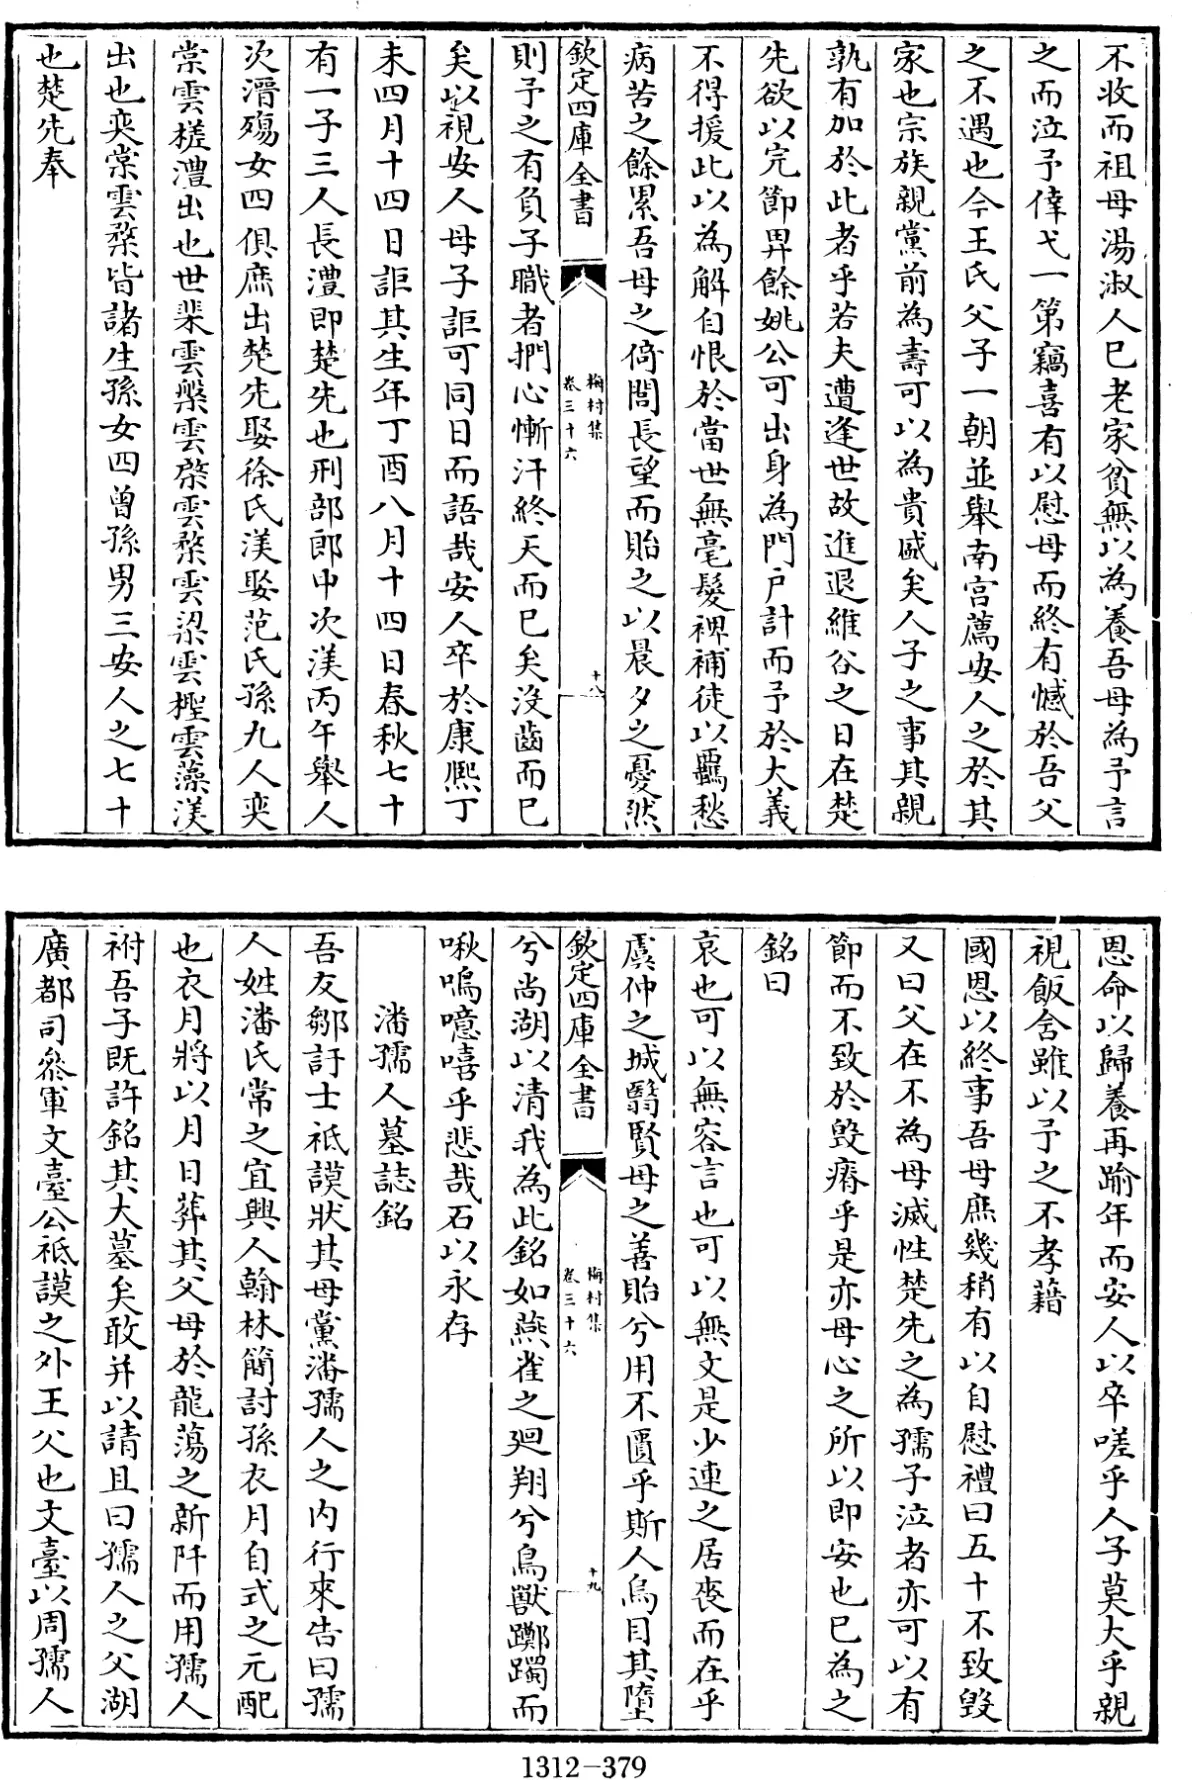 不收而祖母湯淑人已老家貧無以為養吾母為予言
之而泣予倖弋一第竊喜有以慰母而終有憾於吾父
之不遇也今王氏父子一朝並舉南宮薦安人之於其
家也宗族親黨前為壽可以為貴盛矣人子之事其親
孰有加於此者乎若夫遭逢世故進退維谷之日在楚
先欲以完節畀餘姚公可出身為門戶計而予於大義
不得援此以為解自恨於當世無毫髮裨補徒以羈愁
病苦之餘累吾母之倚閭長望而貽之以晨夕之憂然
欽定四庫全書
梅村集
卷三十六
十八
則予之有負子職者捫心慚汗終天而已矣沒齒而已
矣以視安人母子詎可同日而語哉安人卒於康熙丁
未四月十四日詎其生年丁酉八月十四日春秋七十
有一子三人長澧即楚先也刑部郎中次渼丙午舉人
次潛殤女四俱庶出楚先娶徐氏渼娶范氏孫九人奕
棠雲槎澧出也世棐雲槃雲棨雲楘雲梁雲檉雲藻渼
出也奕棠雲楘皆諸生孫女四曾孫男三安人之七十
也楚先奉
恩命以歸養再踰年而安人以卒嗟乎人子莫大乎親
視飯含雖以予之不孝藉
國恩以終事吾母庶幾稍有以自慰禮曰五十不致毀
又曰父在不為母滅性楚先之為孺子泣者亦可以有
節而不致於毀瘠乎是亦母心之所以即安也已為之
銘曰
哀也可以無容言也可以無文是少連之居喪而在乎
虞仲之城翳賢母之善貽兮用不匱乎斯人烏目其墮
欽定四庫全書
梅村集
卷三十六
十九
兮尚湖以清我為此銘如燕雀之迴翔兮鳥獸躑躅而
啾嗚噫嘻乎悲哉石以永存
潘孺人墓誌銘
吾友鄒訏士祗謨狀其母黨潘孺人之内行來告曰孺
人姓潘氏常之宜興人翰林簡討孫衣月自式之元配
也衣月將以月日葬其父母於龍蕩之新阡而用孺人
祔吾子既許銘其大墓矣敢并以請且曰孺人之父湖
廣都司參軍文臺公祗謨之外王父也文臺以周孺人
1312-379